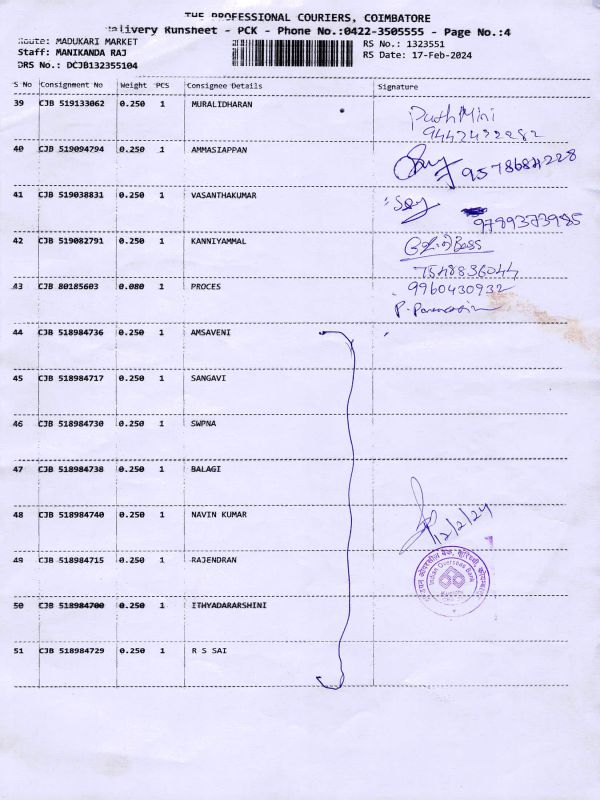 THE PROFESSIONAL COURIERS, COIMBATORE
Delivery Runsheet - PCK - Phone No.:0422-3505555 - Page No.:4
Route: MADUKARI MARKET
RS No.: 1323551
Staff: MANIKANDA RAJ
RS Date: 17-Feb-2024
DRS No.: DCJB132355104
S No Consignment No Weight PCS Consignee Details Signature
39 CJB 519133062 0.250 1 MURALIDHARAN
9442432282
40 CJB 519094794 0.250 1 AMMASIAPPAN
9578684228
41 CJB 519038831 0.250 1 VASANTHAKUMAR
9789373985
42 CJB 519082791 0.250 1 KANNIYAMMAL
7548836044
43 CJB 80185603 0.080 1 PROCES
9960430932
44 CJB 518984736 0.250 1 AMSAVENI
45 CJB 518984717 0.250 1 SANGAVI
46 CJB 518984730 0.250 1 SWPNA
47 CJB 518984738 0.250 1 BALAGI
48 CJB 518984740 0.250 1 NAVIN KUMAR
12/2/24
49 CJB 518984715 0.250 1 RAJENDRAN
Indian Overseas Bank
50 CJB 518984700 0.250 1 ITHYADARARSHINI
51 CJB 518984729 0.250 1 R S SAI